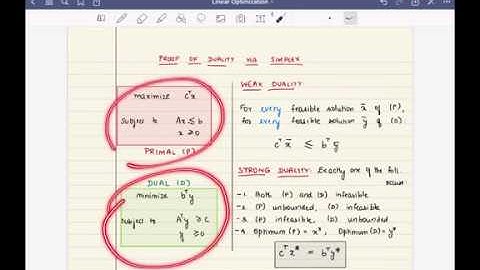 Linear Optimization
PROOF OF DUALITY VIA SIMPLEX
maximize cᵀx
subject to Ax ≤ b
x ≥ 0
PRIMAL (P)
DUAL (D)
minimize bᵀy
subject to Aᵀy ≥ c
y ≥ 0
WEAK DUALITY
For every feasible solution x̄ of (P),
for every feasible solution ȳ of (D)
cᵀx̄ ≤ bᵀȳ
STRONG DUALITY: Exactly one of the foll.
occurs
-1. Both (P) and (D) infeasible
-2. (P) unbounded, (D) infeasible
-3. (P) infeasible, (D) unbounded
-4. Optimum (P) = x*, Optimum (D) = y*
cᵀx* = bᵀy*